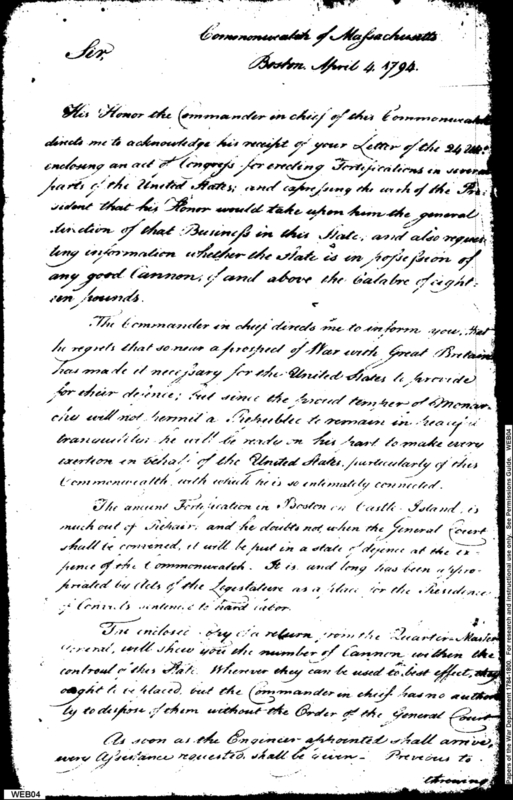 Commonwealth of Massachusetts
Boston April 4. 1794.
Sir,
His Honor the Commander in chief of this Commonwealth
directs me to acknowledge his receipt of your Letter of the 24 Ulto
enclosing an act of Congress for erecting Fortifications in several
parts of the United States; and expressing the wish of the Pre-
sident that his Honor would take upon him the general
direction of that Business in this State, and also reques-
ting information whether the State is in possession of
any good Cannon, of and above the Calabre of eight-
een pounds.
The Commander in chief directs me to inform you, that
he regrets that so near a prospect of War with Great Britain
has made it necessary for the United States to provide
for their defence; but since the proud temper of Monar-
chies will not permit a Republic to remain in peace &
tranquility he will be ready on his part to make every
exertion in behalf of the United States, particularly of this
Commonwealth, with which he is so intimately connected.
The Fortification in Boston on Castle Island, is
much out of Repair, and he doubts not, when the General Court
shall be convened, it will be put in a state of defence at the ex-
pence of the Commonwealth. It is and long has been appro-
priated by Acts of the Legislature as a place for the Residence
of Convicts sentenced to hard labor.
The enclosed copy of a return from the Quarter-Master
General, will shew you the number of Cannon within the
controul of this State. Wherever they can be used to best effect, they
ought to be placed, but the Commander in chief has no author-
ity to dispose of them without the Order of the General Court
As soon as the Engineer appointed shall arrive,
every Assistance requested, shall be given. Previous to
throwing
WEB04
Papers of the War Department 1784-1800. For research and instructional use only. See Permissions Guide. WEB04